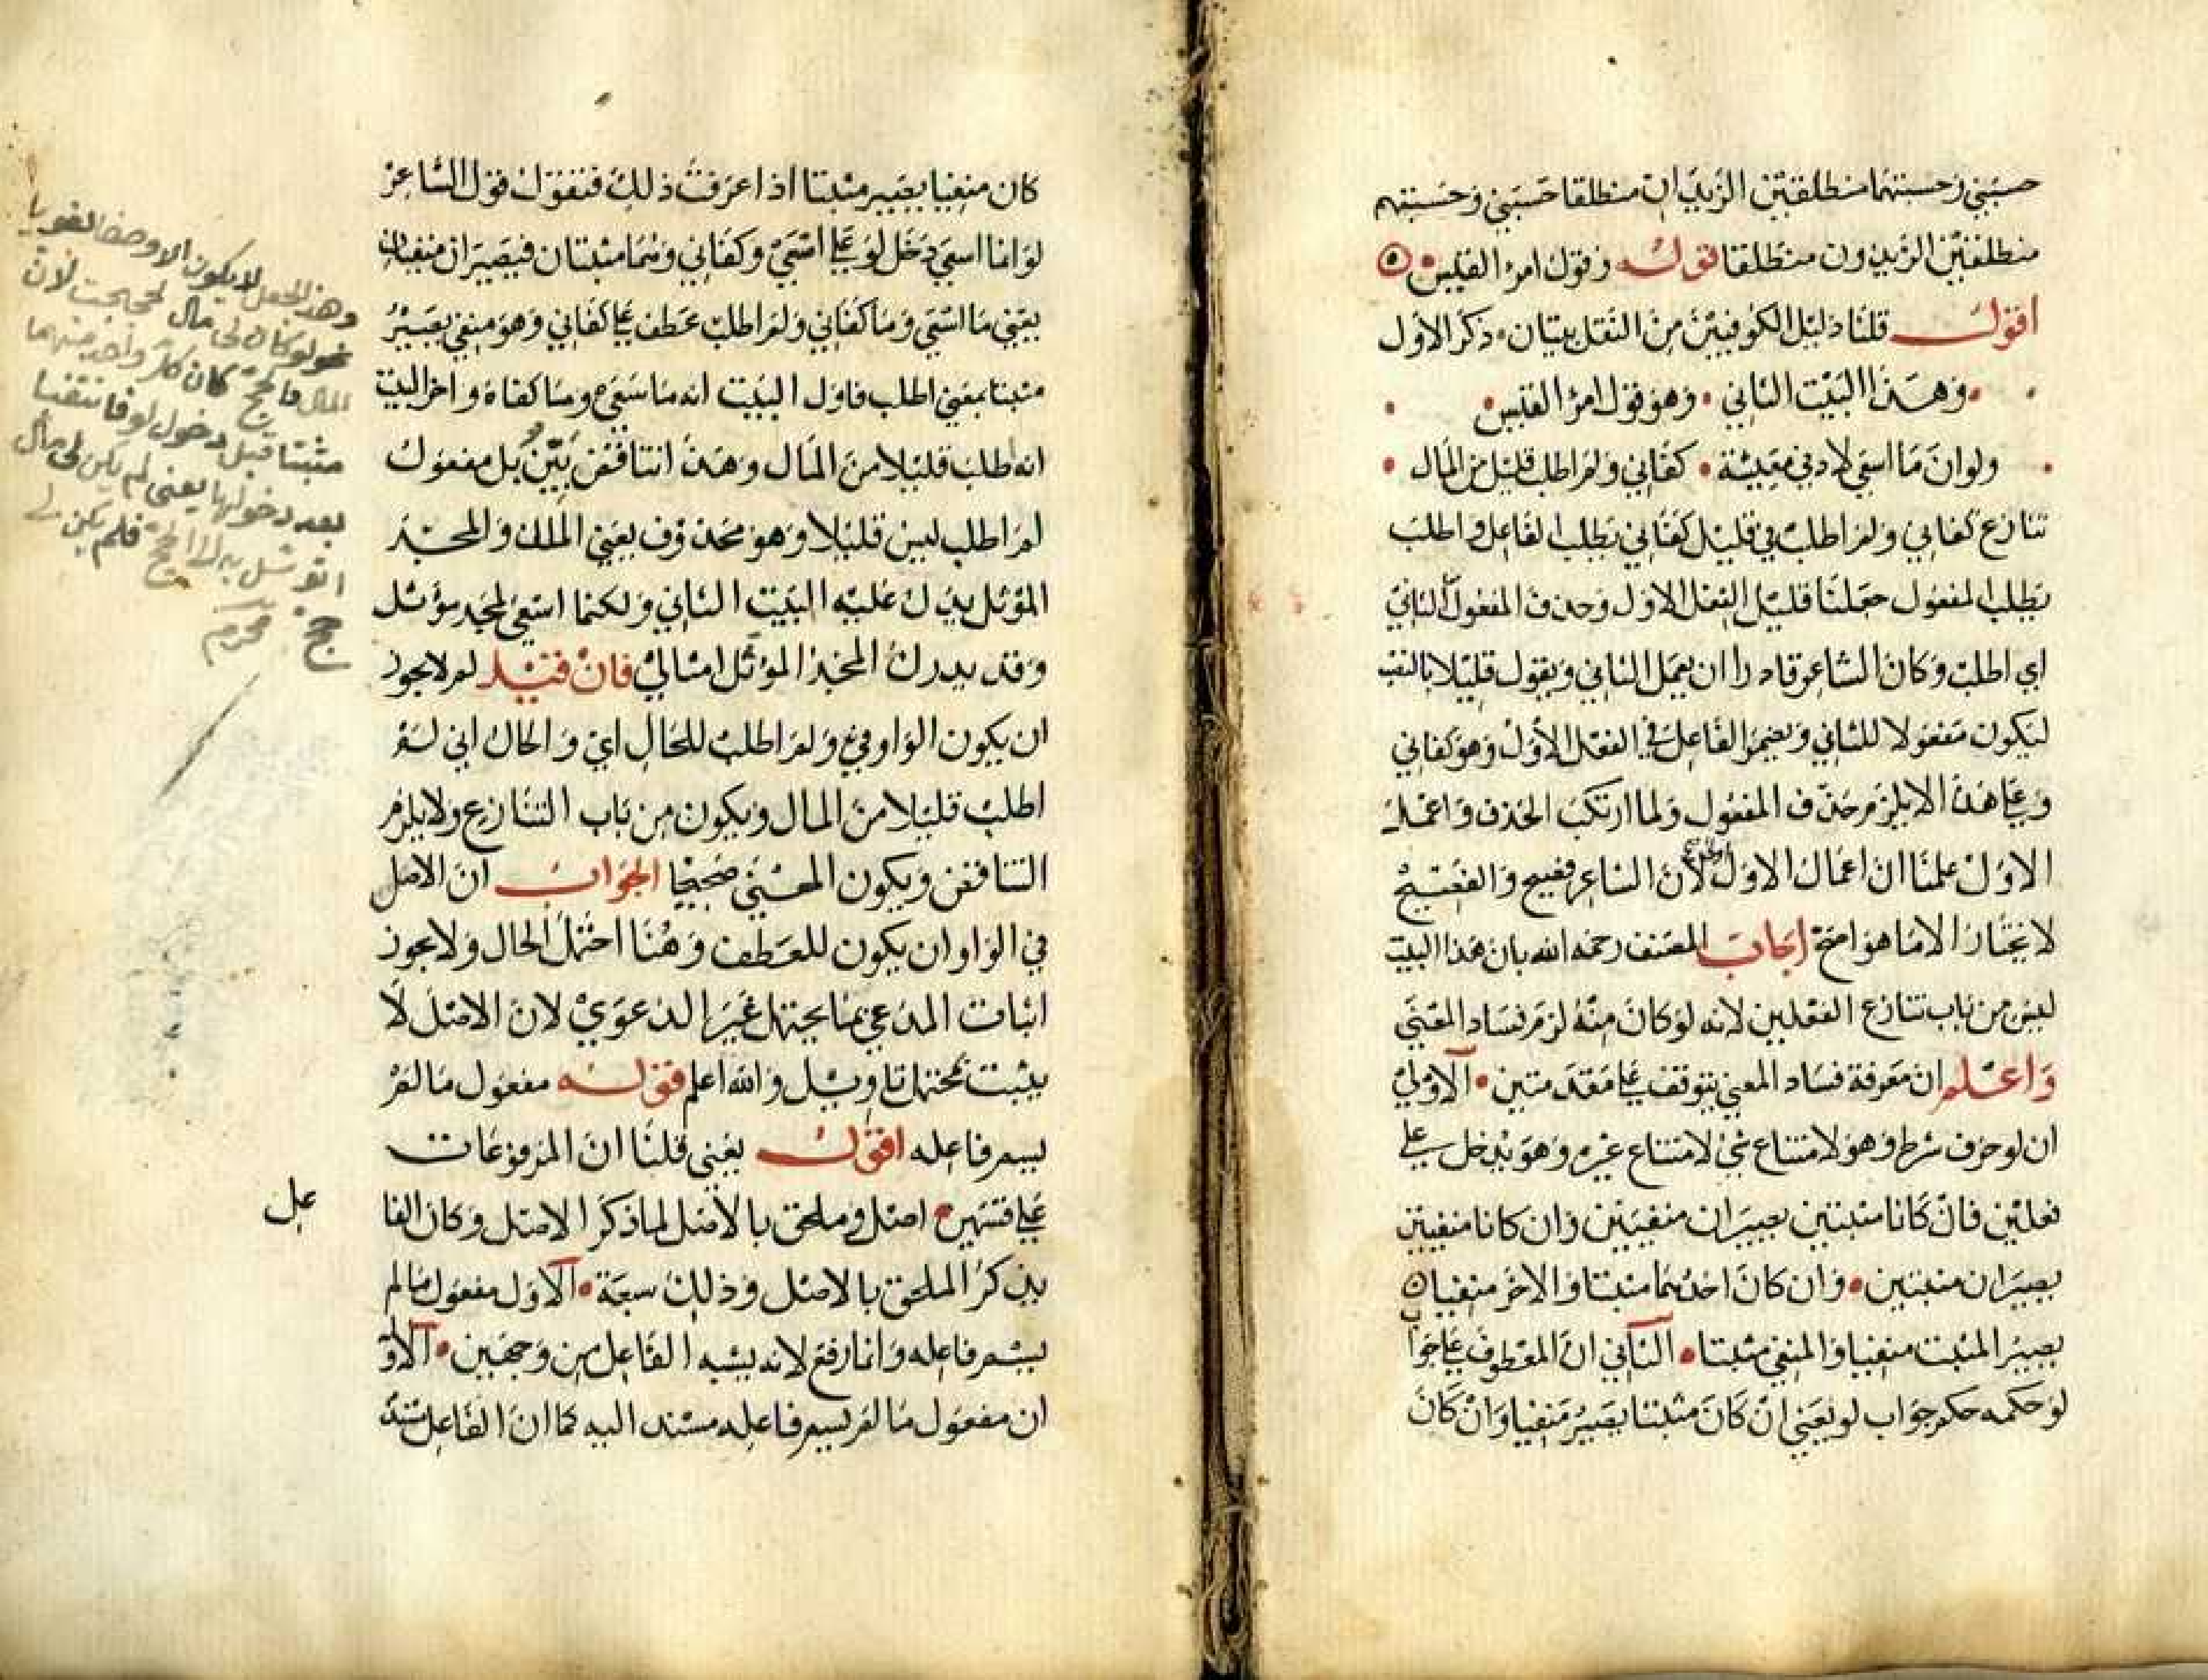 حسبني وحسبتهما منطلقين الزيدان منطلقا حسبني وحسبتهم
منطلقين الزيدون منطلقا قوله وقول امرئ القيس
اقول قلنا دليل الكوفيين من النقل بيتان ذكر الاول
وهذا البيت الثاني وهو قول امرئ القيس
ولو ان ما اسعى لادنى معيشة كفاني ولم اطلب قليل من المال
تنازع كفاني ولم اطلب في قليل كفاني يطلب الفاعل واطلب
يطلب المفعول جعلنا قليل الفعل الاول وحذف المفعول الثاني
اي اطلب وكان الشاعر قادرا ان يعمل الثاني ويقول قليلا بالنصب
ليكون مفعولا للثاني ويضمر الفاعل في الفعل الاول وهو كفاني
وعلى هذا لا يلزم حذف المفعول ولما ارتكب الحذف واعمل
الاول علمنا ان اعمال الاول اولى لان الشاعر فصيح والفصيح
لا يختار الا ما هو اصح اجاب المصنف رحمه الله بان هذا البيت
ليس من باب تنازع الفعلين لانه لو كان منه لزم فساد المعنى
واعلم ان معرفة فساد المعنى يتوقف على مقدمتين الاولى
ان لو حرف شرط وهو لامتناع شئ لامتناع غيره وهو يدخل على
فعلين فان كانا مثبتين يصيران منفيين وان كانا منفيين
يصيران مثبتين وان كان احدهما مثبتا والاخر منفيا
يصير المثبت منفيا والمنفي مثبتا الثاني ان المعطوف على جواب
لو حكمه حكم جواب لو يعني ان كان مثبتا يصير منفيا وان كان
كان منفيا يصير مثبتا اذا عرفت ذلك فنقول قول الشاعر
لو انما اسعى دخل لو على اسعى وكفاني وهما مثبتان فيصيران منفيان
يعني ما اسعى وما كفاني ولم اطلب عطف على كفاني وهو منفي يصير
مثبتا بمعنى اطلب فاول البيت انه ما سعى وما كفاه واخر البيت
انه طلب قليلا من المال وهذا تناقض بين بل مفعول
لم اطلب ليس قليلا وهو محذوف يعني الملك والمجد
المؤثل يدل عليه البيت الثاني ولكنما اسعى لمجد مؤثل
وقد يدرك المجد المؤثل امثالي فان قيل لم لا يجوز
ان يكون الواو في ولم اطلب للحال اي والحال اني لم
اطلب قليلا من المال ويكون من باب التنازع ولا يلزم
التناقض ويكون المعنى صحيحا الجواب ان الاصل
في الواو ان يكون للعطف وهنا احتمل الحال ولا يجوز
اثبات المدعى بما يحتمل غير الدعوى لان الاصل لا
يثبت بمحتمل تاويل والله اعلم قوله مفعول ما لم
يسم فاعله اقول يعني قلنا ان المرفوعات
على قسمين اصل وملحق بالاصل لما ذكر الاصل وكان الفا
عل
يذكر الملحق بالاصل وذلك سبعة الاول مفعول ما لم
يسم فاعله وانما رفع لانه يشبه الفاعل من وجهين الاول
ان مفعول ما لم يسم فاعله مسند اليه كما ان الفاعل مسند
وهذا الجعل لا يكون الا وصفا لغويا
نحو لو كان لي مال لحججت لان
المال والحج كان كل واحد منهما
مثبتا قبل دخول لو فانتفيا
بعد دخولها يعني لم يكن لي مال
فلم يكن لي
حج محرم